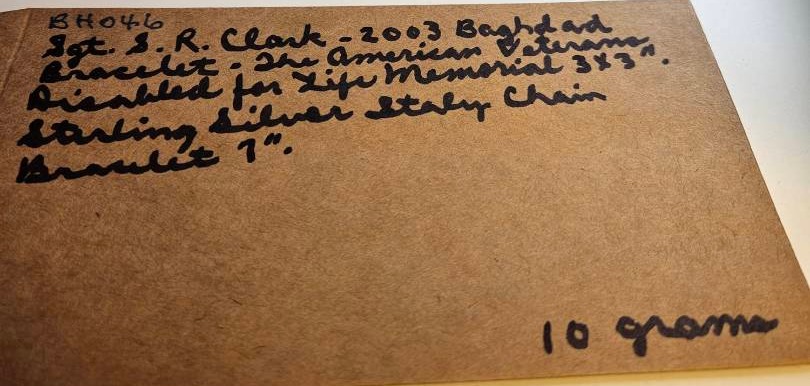 BH046
Sgt. S. R. Clark - 2003 Baghdad
Bracelet - The American Veterans
Disabled for Life Memorial 3x3".
Sterling Silver Italy Chain
Bracelet 7".
10 grams